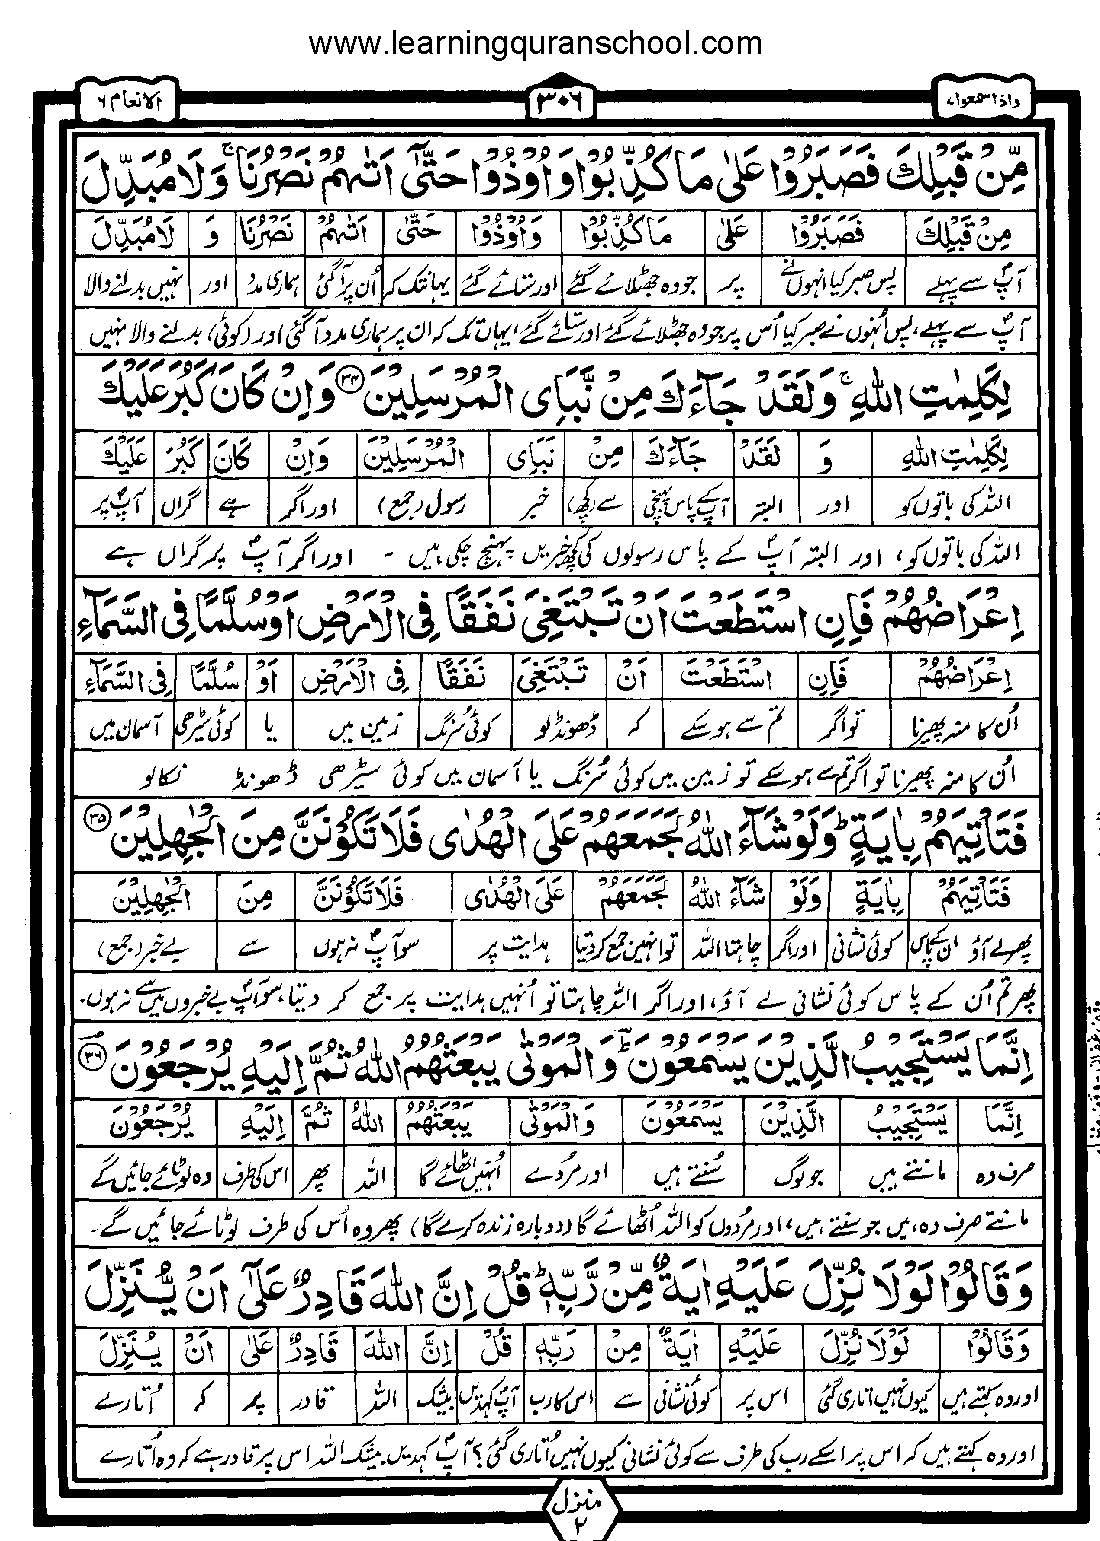 www.learningquranschool.com
واذاسمعوا ٧
٣٠٦
الانعام ٦
مِّنْ قَبْلِكَ فَصَبَرُوْا عَلٰى مَا كُذِّبُوْا وَاُوْذُوْا حَتّٰٓى اَتٰىهُمْ نَصْرُنَا ۚ وَلَا مُبَدِّلَ
مِنْ قَبْلِكَ فَصَبَرُوْا عَلٰى مَا كُذِّبُوْا وَاُوْذُوْا حَتّٰى اَتٰىهُمْ نَصْرُنَا وَ لَامُبَدِّلَ
آپؐ سے پہلے پس صبر کیا انہوں نے پر جو وہ جھٹلائے گئے اور ستائے گئے یہانتک کہ اُن پر آگئی ہماری مدد اور نہیں بدلنے والا
آپؐ سے پہلے، پس اُنہوں نے صبر کیا اُس پر جو وہ جھٹلائے گئے اور ستائے گئے، یہاں تک کہ ان پر ہماری مدد آگئی اور (کوئی) بدلنے والا نہیں
لِكَلِمٰتِ اللّٰهِ ۚ وَلَقَدْ جَآءَكَ مِنْ نَّبَاِى الْمُرْسَلِيْنَ ﴿٣٤﴾ وَاِنْ كَانَ كَبُرَ عَلَيْكَ
لِكَلِمٰتِ اللّٰهِ وَ لَقَدْ جَآءَكَ مِنْ نَبَاِى الْمُرْسَلِيْنَ وَاِنْ كَانَ كَبُرَ عَلَيْكَ
اللہ کی باتوں کو اور البتہ آپکے پاس پہنچی سے (کچھ) خبر رسول (جمع) اور اگر ہے گراں آپؐ پر
اللہ کی باتوں کو، اور البتہ آپؐ کے پاس رسولوں کی کچھ خبریں پہنچ چکی ہیں - اور اگر آپؐ پر گراں ہے
اِعْرَاضُهُمْ فَاِنِ اسْتَطَعْتَ اَنْ تَبْتَغِىَ نَفَقًا فِى الْاَرْضِ اَوْ سُلَّمًا فِى السَّمَآءِ
اِعْرَاضُهُمْ فَاِنِ اسْتَطَعْتَ اَنْ تَبْتَغِىَ نَفَقًا فِى الْاَرْضِ اَوْ سُلَّمًا فِى السَّمَآءِ
اُن کا منہ پھیرنا تو اگر تم سے ہوسکے کہ ڈھونڈ لو کوئی سُرنگ زمین میں یا کوئی سیڑھی آسمان میں
اُن کا منہ پھیرنا تو اگر تم سے ہوسکے تو زمین میں کوئی سُرنگ یا آسمان میں کوئی سیڑھی ڈھونڈ نکالو
فَتَاْتِيَهُمْ بِاٰيَةٍ ؕ وَلَوْ شَآءَ اللّٰهُ لَجَمَعَهُمْ عَلَى الْهُدٰى فَلَا تَكُوْنَنَّ مِنَ الْجٰهِلِيْنَ ﴿٣٥﴾
فَتَاْتِيَهُمْ بِاٰيَةٍ وَلَوْ شَآءَ اللّٰهُ لَجَمَعَهُمْ عَلَى الْهُدٰى فَلَا تَكُوْنَنَّ مِنَ الْجٰهِلِيْنَ
پھر لے آؤ ان کے پاس کوئی نشانی اور اگر چاہتا اللہ تو انہیں جمع کردیتا ہدایت پر سو آپؐ نہ ہوں سے بے خبر (جمع)
پھر تم اُن کے پاس کوئی نشانی لے آؤ، اور اگر اللہ چاہتا تو اُنہیں ہدایت پر جمع کر دیتا، سو آپؐ بے خبروں میں سے نہ ہوں۔
اِنَّمَا يَسْتَجِيْبُ الَّذِيْنَ يَسْمَعُوْنَ ؕ وَالْمَوْتٰى يَبْعَثُهُمُ اللّٰهُ ثُمَّ اِلَيْهِ يُرْجَعُوْنَ ﴿٣٦﴾
اِنَّمَا يَسْتَجِيْبُ الَّذِيْنَ يَسْمَعُوْنَ وَالْمَوْتٰى يَبْعَثُهُمُ اللّٰهُ ثُمَّ اِلَيْهِ يُرْجَعُوْنَ
صرف وہ مانتے ہیں جو لوگ سُنتے ہیں اور مُردے اُنہیں اٹھائے گا اللہ پھر اس کی طرف وہ لوٹائے جائیں گے
مانتے صرف وہ ہیں جو سنتے ہیں، اور مُردوں کو اللہ اُٹھائے گا (دوبارہ زندہ کرے گا) پھر وہ اُس کی طرف لوٹائے جائیں گے۔
وَقَالُوْا لَوْلَا نُزِّلَ عَلَيْهِ اٰيَةٌ مِّنْ رَّبِّهٖ ؕ قُلْ اِنَّ اللّٰهَ قَادِرٌ عَلٰٓى اَنْ يُّنَزِّلَ
وَقَالُوْا لَوْلَا نُزِّلَ عَلَيْهِ اٰيَةٌ مِنْ رَبِّهٖ قُلْ اِنَّ اللّٰهَ قَادِرٌ عَلٰى اَنْ يُنَزِّلَ
اور وہ کہتے ہیں کیوں نہیں اتاری گئی اس پر کوئی نشانی سے اس کا رب آپؐ کہدیں بیشک اللہ قادر پر کہ اُتارے
اور وہ کہتے ہیں کہ اس پر اسکے رب کی طرف سے کوئی نشانی کیوں نہیں اُتاری گئی؟ آپؐ کہدیں۔ بیشک اللہ اس پر قادر ہے کہ وہ اُتارے
منزل
٢